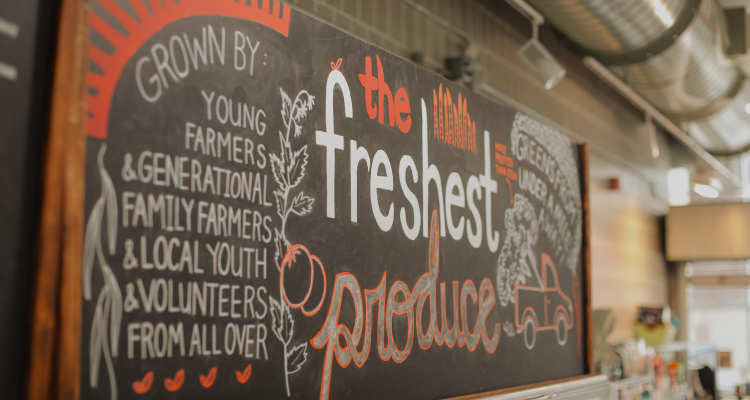 GROWN BY:
YOUNG
FARMERS
& GENERATIONAL
FAMILY FARMERS
& LOCAL YOUTH
& VOLUNTEERS
FROM ALL OVER
the
freshest
produce
GREENS
UNDER A